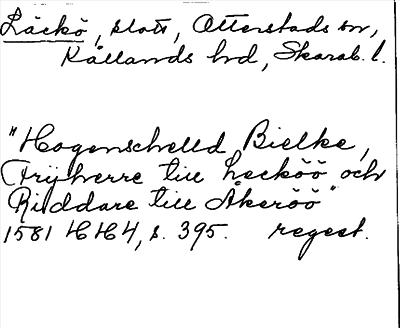 Läckö, slott, Otterstads sn,
Kållands hd, Skarab. l.
"Hogenschelld Bielke,
Frijherre till Lecköö och
Riddare till Åkeröö"
1581 HH4, s. 395. regest.